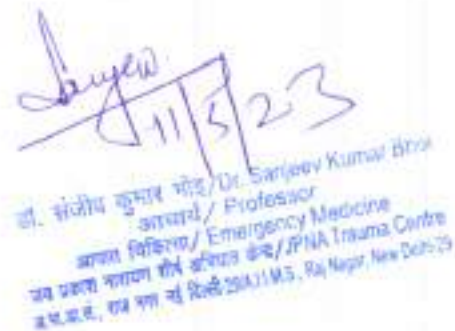 Sanjeev
11/5/23
डॉ. संजीव कुमार भोइ/Dr. Sanjeev Kumar Bhoi
आचार्य/ Professor
आपात चिकित्सा/ Emergency Medicine
जय प्रकाश नारायण शीर्ष अभिघात केन्द्र/JPNA Trauma Centre
नई दिल्ली-29/A.I.I.M.S., Raj Nagar, New Delhi-29